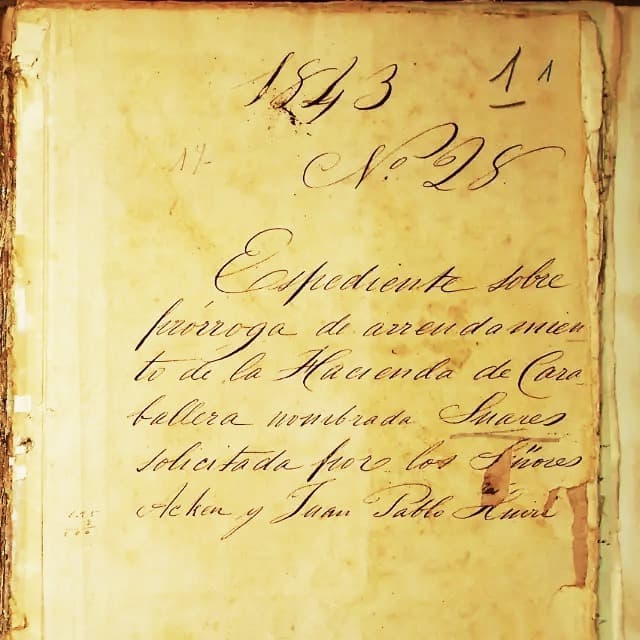 1843 1 1
17
No. 28
Espediente sobre
prórroga de arrendamien
to de la Hacienda de Cara
ballera nombrada Suares
solicitada por los Señores
Acken y Juan Pablo